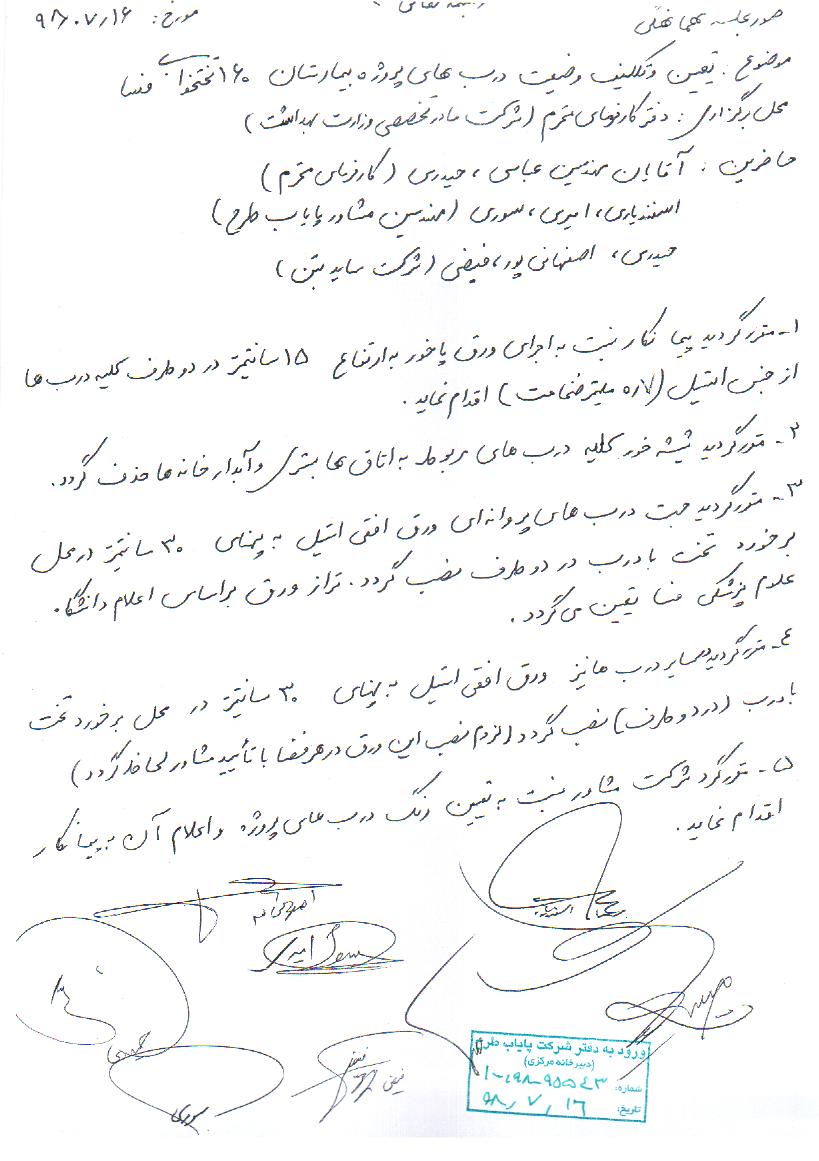 بسمه تعالی
صورتجلسه هماهنگی
مورخ: ۹۸/۰۷/۱۶
موضوع: تعیین و تکلیف وضعیت درب های پروژه بیمارستان ۱۶۰ تختخوابی فسا
محل برگزاری: دفتر کارفرمای محترم (شرکت مادر تخصصی وزارت بهداشت)
حاضرین: آقایان مهندسین عباسی، حیدری (کارفرمای محترم)
اسفندیاری، امیری، سوری (مهندسین مشاور پایاب طرح)
حیدری، اصفهانی پور، فیضی (شرکت ساید بتن)
۱- مقرر گردید پیمانکار نسبت به اجرای ورق پاخور به ارتفاع ۱۵ سانتیمتر در دو طرف کلیه درب ها
از جنس استیل (۰٫۷ میلیمتر ضخامت) اقدام نماید.
۲- مقرر گردید شیشه خور کلیه درب های مربوط به اتاق ها بستری و آبدارخانه ها حذف گردد.
۳- مقرر گردید جهت درب های پروانه ای ورق افقی استیل به پهنای ۳۰ سانتیمتر در محل
برخورد تخت با درب در دو طرف نصب گردد. تراز ورق براساس اعلام دانشگاه
علوم پزشکی فسا تعیین می گردد.
۴- مقرر گردید سایر درب ها نیز ورق افقی استیل به پهنای ۳۰ سانتیمتر در محل برخورد تخت
با درب (در دو طرف) نصب گردد (لزوم نصب این ورق در هر فضا با تأیید مشاور لحاظ گردد)
۵- مقرر گردد شرکت مشاور نسبت به تعیین رنگ درب های پروژه و اعلام آن به پیمانکار
اقدام نماید.
اسفندیاری
امیری
فیضی
سوری
ورود به دفتر شرکت پایاب طرح
(دبیرخانه مرکزی)
شماره:
تاریخ: ۹۸/۷/۱۶